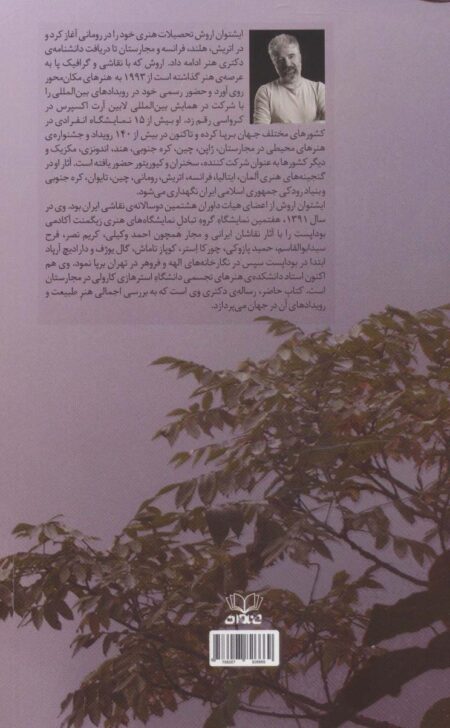 ایشتوان اروش تحصیلات هنری خود را در رومانی آغاز کرد و
در اتریش، هلند، فرانسه و مجارستان تا دریافت دانشنامه‌ی
دکتری هنر ادامه داد. اروش که با نقاشی و گرافیک پا به
عرصه‌ی هنر گذاشته است از ۱۹۹۳ به هنرهای مکان‌محور
روی آورد و حضور رسمی خود در رویدادهای بین‌المللی را
با شرکت در همایش بین‌المللی لابین آرت اکسپرس در
کرواسی رقم زد. او بیش از ۱۵ نمایشگاه انفرادی در
کشورهای مختلف جهان برپا کرده و تاکنون در بیش از ۱۴۰ رویداد و جشنواره‌ی
هنرهای محیطی در مجارستان، ژاپن، چین، کره جنوبی، هند، اندونزی، مکزیک و
دیگر کشورها به عنوان شرکت کننده، سخنران و کیوریتور حضور یافته است. آثار او در
گنجینه‌های هنری آلمان، ایتالیا، فرانسه، اتریش، رومانی، چین، تایوان، کره جنوبی
و بنیاد رودکی جمهوری اسلامی ایران نگهداری می‌شود.
ایشتوان اروش از اعضای هیات داوران هشتمین دوسالانه‌ی نقاشی ایران بود. وی در
سال ۱۳۹۱، هفتمین نمایشگاه گروه تبادل نمایشگاه‌های هنری زیگمنت آکادمی
بوداپست را با آثار نقاشان ایرانی و مجار همچون احمد وکیلی، کریم نصر، فرح
سیدابوالقاسم، حمید پازوکی، چور کا إستر، کوپار تاماش، گال یوژف و دارادیچ آرپاد
ابتدا در بوداپست سپس در نگارخانه‌های الهه و فروهر در تهران برپا نمود. وی هم
اکنون استاد دانشکده‌ی هنرهای تجسمی دانشگاه استرهازی کارولی در مجارستان
است. کتاب حاضر، رساله‌ی دکتری وی است که به بررسی اجمالی هنر طبیعت و
رویدادهای آن در جهان می‌پردازد.